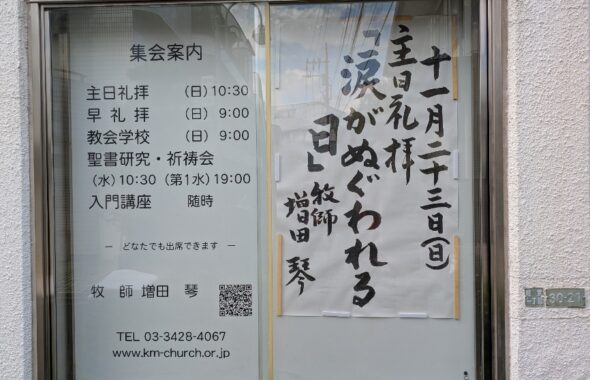 集会案内
主日礼拝 (日) 10:30
早礼拝 (日) 9:00
教会学校 (日) 9:00
聖書研究・祈祷会
(水) 10:30 (第1水) 19:00
入門講座 随時
― どなたでも出席できます ―
牧師 増田 琴
TEL 03-3428-4067
www.km-church.or.jp
十一月二十三日(日)
主日礼拝
「涙がぬぐわれる
日」
牧師
増田 琴
30-21